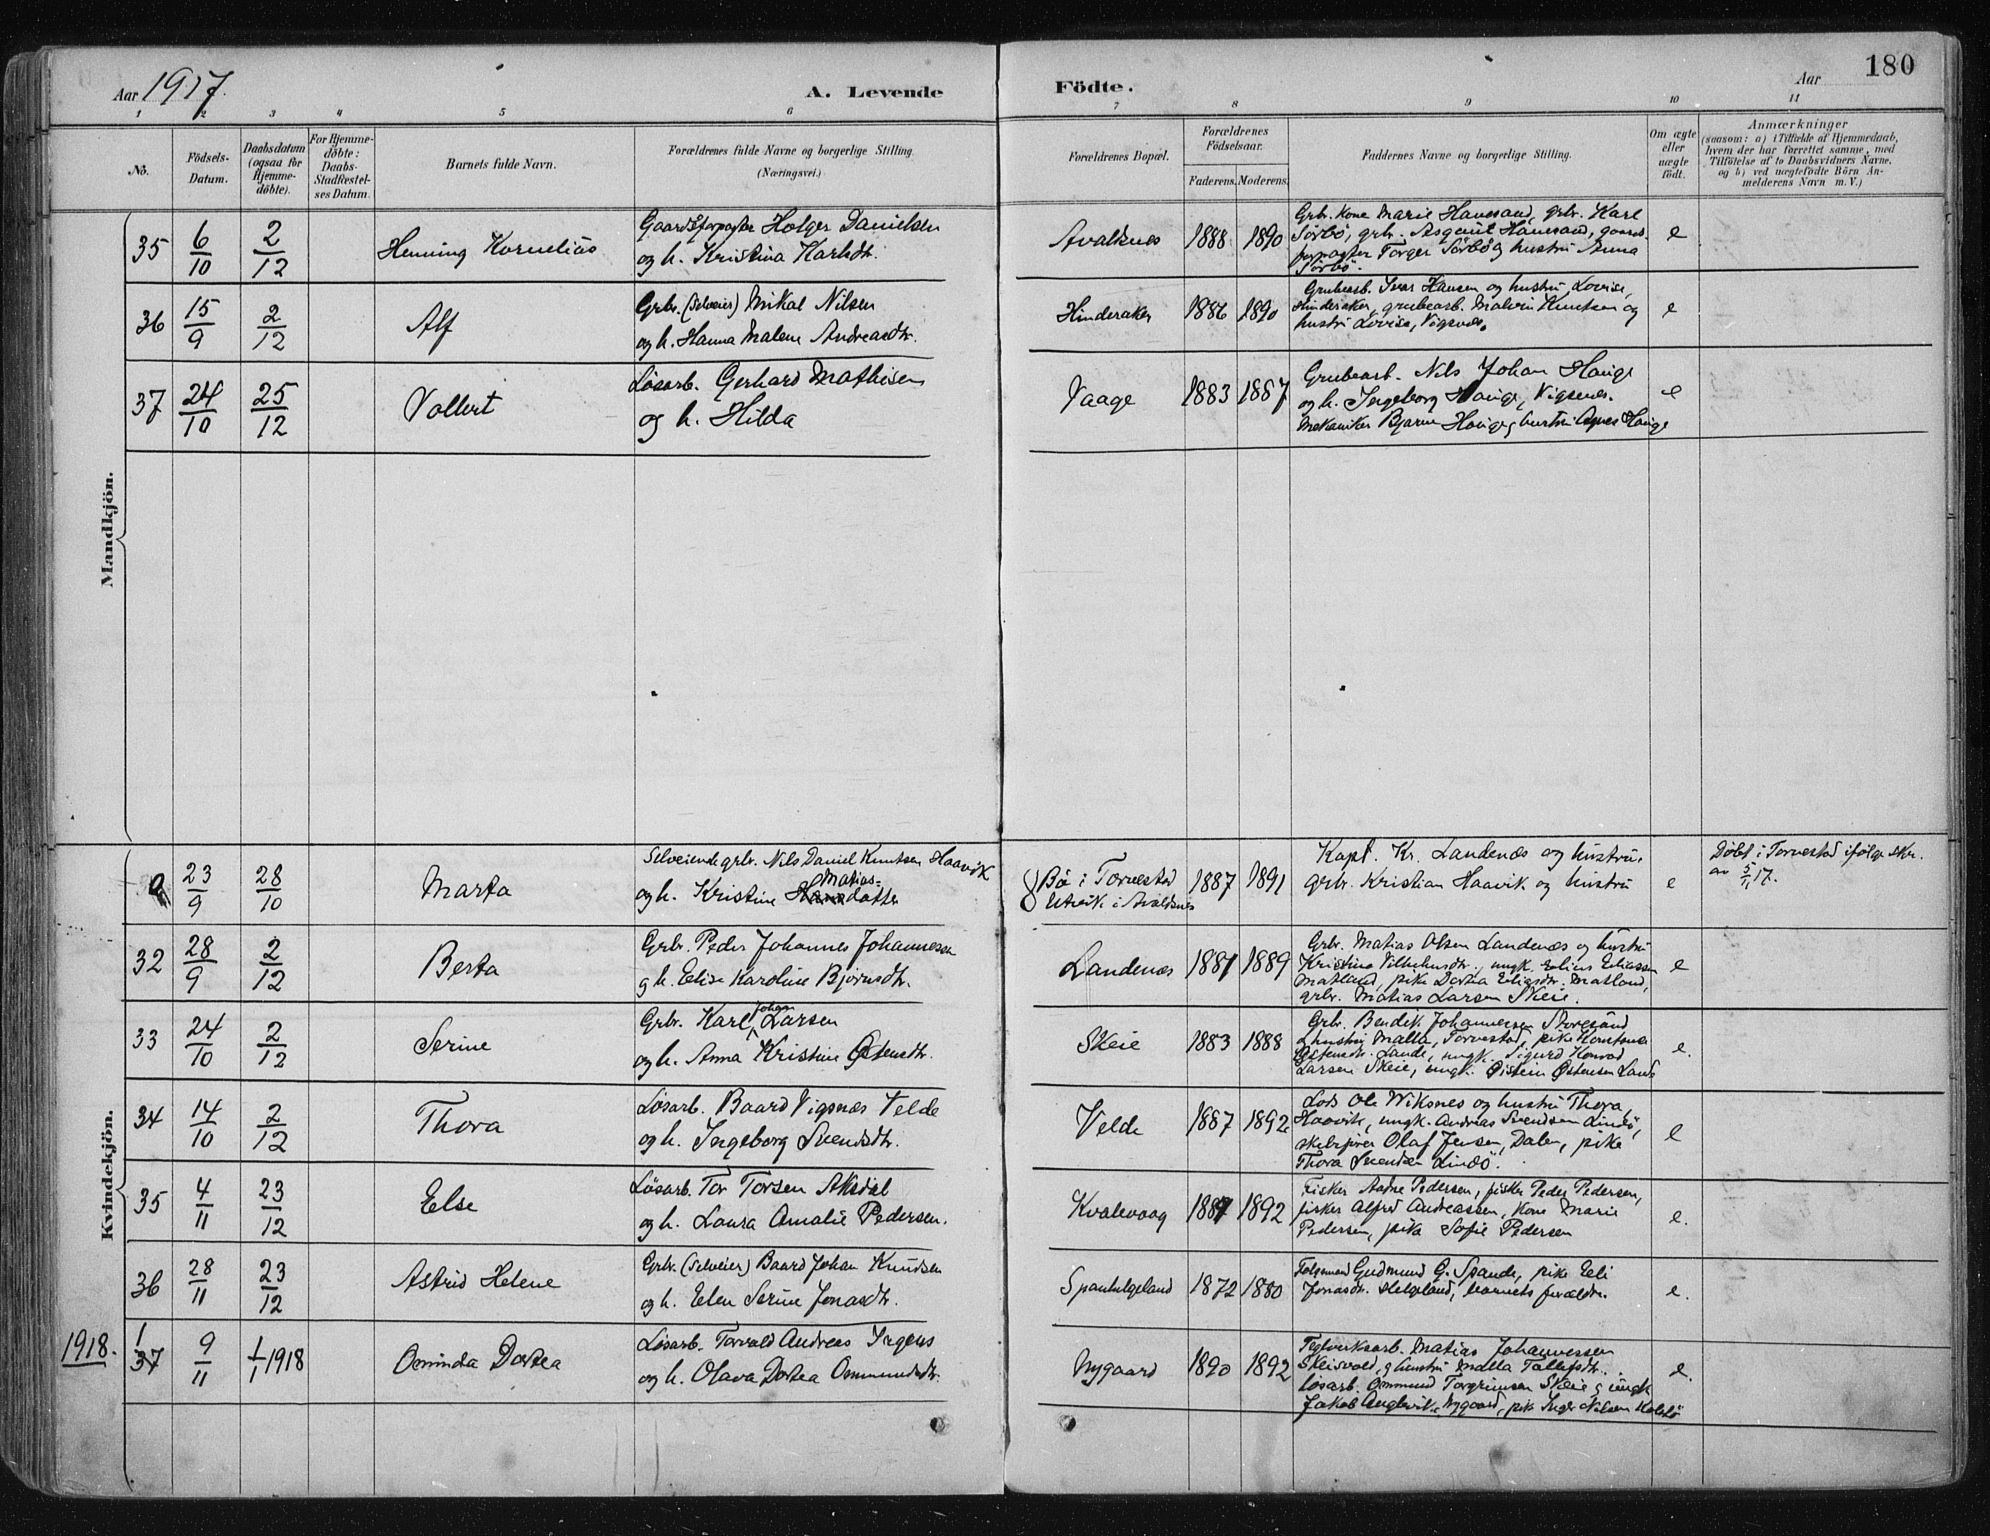 Aar 1917. A. Levende Födte. Aar 180
1 2 3 4 5 6 7 8 9 10 11
No. Födsels-Datum. Daabsdatum (ogsaa for Hjemme-döbte). For Hjemme-döbte: Daabs-Stadfæstel-ses Datum. Barnets fulde Navn. Forældrenes fulde Navne og borgerlige Stilling. (Næringsvei.) Forældrenes Bopæl. Forældrenes Födselsaar. Faderens. Moderens. Faddernes Navne og borgerlige Stilling. Om ægte eller uægte födt. Anmærkninger (saasom: a) i Tilfælde af Hjemmedaab, hvem der har forrettet samme, med Tilföielse af to Daabsvidners Navne, og b) ved uægtefödte Börn An-melderens Navn m. V.)
Mandkjön.
35 6/10 2/12 Henning Kornelius Gaardsforpagter Holger Danielsen
og h. Kristina Karlsdtr. Avaldsnes 1888 1890 Grb. kone Marie Hanesand, grb. Karl
Sörbö, grb. Asgaut Hanesand, gaards-
forpagter Torger Sörbö og hustru Anna
Sörbö. e
36 15/9 2/12 Alf Grbr. (selveier) Mikal Nilsen
og h. Hanna Malene Andreasdtr. Hinderaker 1886 1890 Grubearb. Ivar Hansen og hustru Lovise,
Hinderaker, grubearb. Malvin Knutsen og
hustru Lovise, Vigsnes. e
37 24/10 25/12 Vollert Løsarb. Gerhard Mathisen
og h. Hilda Vaage 1883 1887 Grubearb. Nils Johan Hauge
og h. Ingeborg Hauge, Vigsnes.
Mekaniker Bjarne Hauge, hustru Agnes Hauge e
Kvindekjön.
23/9 28/10 Marta Selveiende grbr. Nils Daniel Knutsen Haavik
og h. Kristine Matias-datter Bø i Torvestad
Utvik i Avaldsnes 1887 1891 Kapt. Kr. Landenæs og hustru
grbr. Kristian Haavik og hustru e Døbt i Torvestad ifølge skr.
av 5/11 17.
32 28/9 2/12 Berta Grbr. Peder Johannes Johannesen
g h. Elise Karoline Bjørnsdtr. Landenæs 1881 1889 Grbr. Matias Olsen Landenæs og hustru
Kristina Vilhelmsdtr., ungk. Elius Eliassen
Matland, pike Dortea Eliasdtr. Matland,
grbr. Matias Larsen Skeie. e
33 24/10 2/12 Serine Grbr. Karl Johan Larsen
og h. Anna Kristine Østensdtr. Skeie 1883 1888 Grbr. Bendik Johannesen Storesund
hustru Malla, Torvestad, pike
Østensdtr. Lande, ungk. Sigurd Konrad
Larsen Skeie, ungk. Øistein Østensen Lande e.
34 14/10 2/12 Thora Løsarb. Baard Vigsnæs Velde
og h. Ingeborg Svendsdtr. Velde 1887 1892 Lods Ole Wiksnes og hustru Thora,
Haavik, ungk. Andreas Svendsen Lindö,
skibsfører Olaf Jensen, Dalen, pike
Thora Svendsen Lindö. e
35 4/11 23/12 Else Løsarb. Tor Torsen Aksdal
og h. Laura Amalie Pedersen. Kvalevaag 1887 1892 Fisker Aadne Pedersen, fisker Peder Pedersen,
fisker Alfred Andreassen, kone Marie
Pedersen, pike Sofie Pedersen e.
36 28/11 23/12 Astrid Helene Grbr. (selveier) Baard Johan Knudsen
og h. Elen Serine Jonasdtr. Spanhelgeland 1872 1880 Gudmund G. Spande, pike Eli
Jonasdtr. Helgeland, barnets forældre. e.
1918. 1 37 9/11 1/1 1918 Ominda Dortea Løsarb. Torvald Andreas Irgens
og h. Olava Dortea Ommundsdtr. Nygaard 1890 1892 Teglverksarb. Matias Johannessen
Skeisvold, g hustru Malla Tollefsdtr.
løsarb. Ommund Torgrimsen Skeie g ungk.
Jakob Nygaard, pike Inger Nilsen Kolstø e.